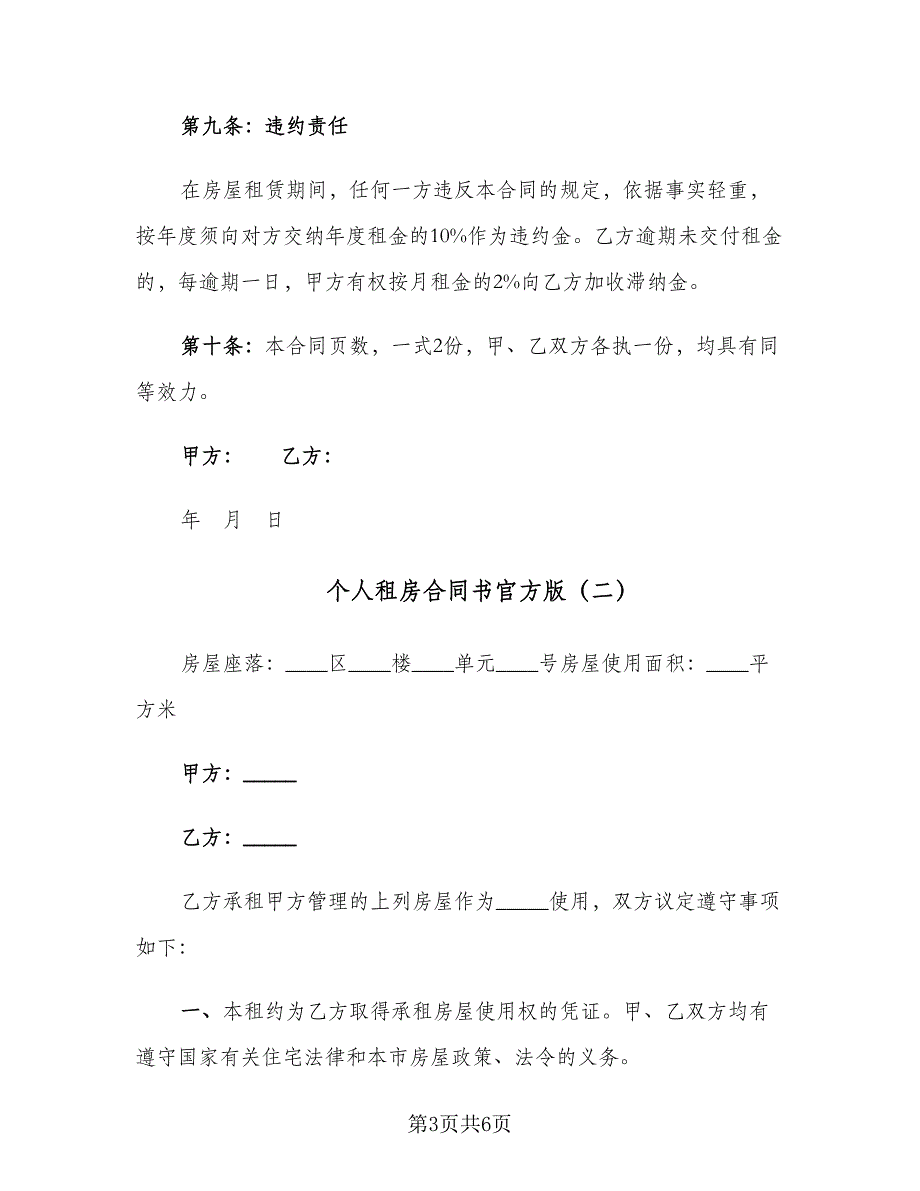 第九条：违约责任
在房屋租赁期间，任何一方违反本合同的规定，依据事实轻重，
按年度须向对方交纳年度租金的10%作为违约金。乙方逾期未交付租金
的，每逾期一日，甲方有权按月租金的2%向乙方加收滞纳金。
第十条：本合同页数，一式2份，甲、乙双方各执一份，均具有同
等效力。
甲方：　　乙方：
年　月　日
个人租房合同书官方版（二）
房屋座落：____区____楼____单元____号房屋使用面积：____平
方米
甲方：_____
乙方：_____
乙方承租甲方管理的上列房屋作为_____使用，双方议定遵守事项
如下：
一、本租约为乙方取得承租房屋使用权的凭证。甲、乙双方均有
遵守国家有关住宅法律和本市房屋政策、法令的义务。
第3页共6页